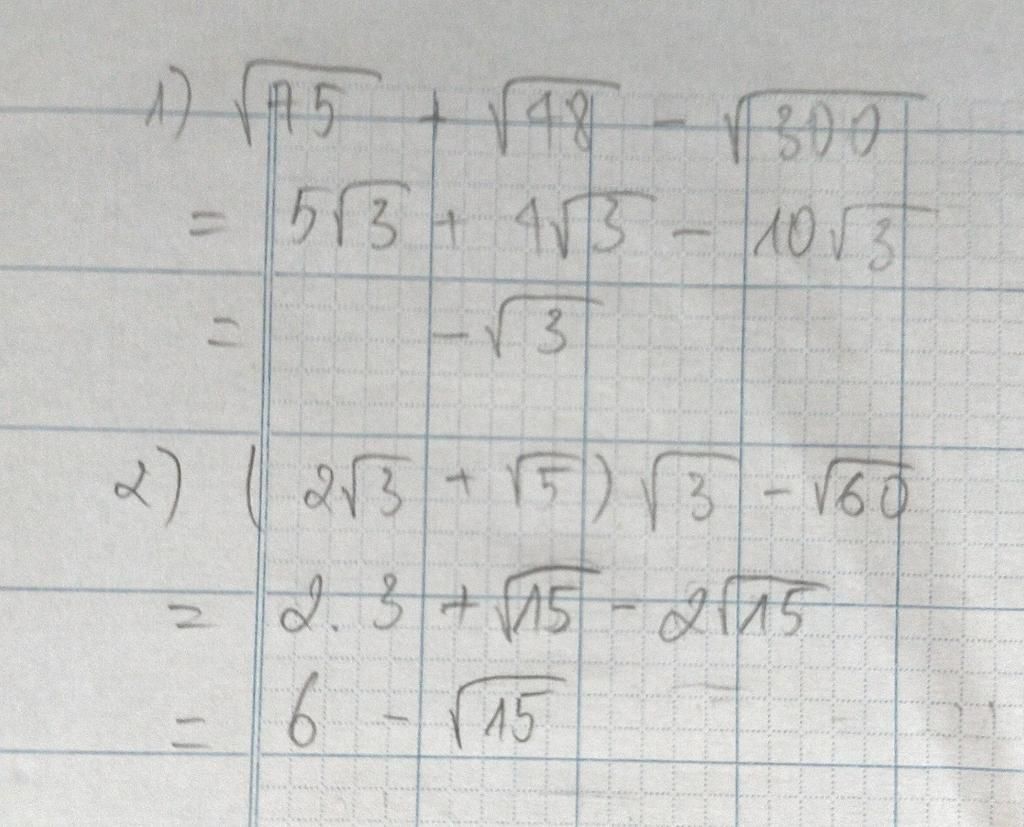 1) √75 + √48 - √300
= 5√3 + 4√3 - 10√3
= -√3
2) (2√3 + √5)√3 - √60
= 2.3 + √15 - 2√15
= 6 - √15